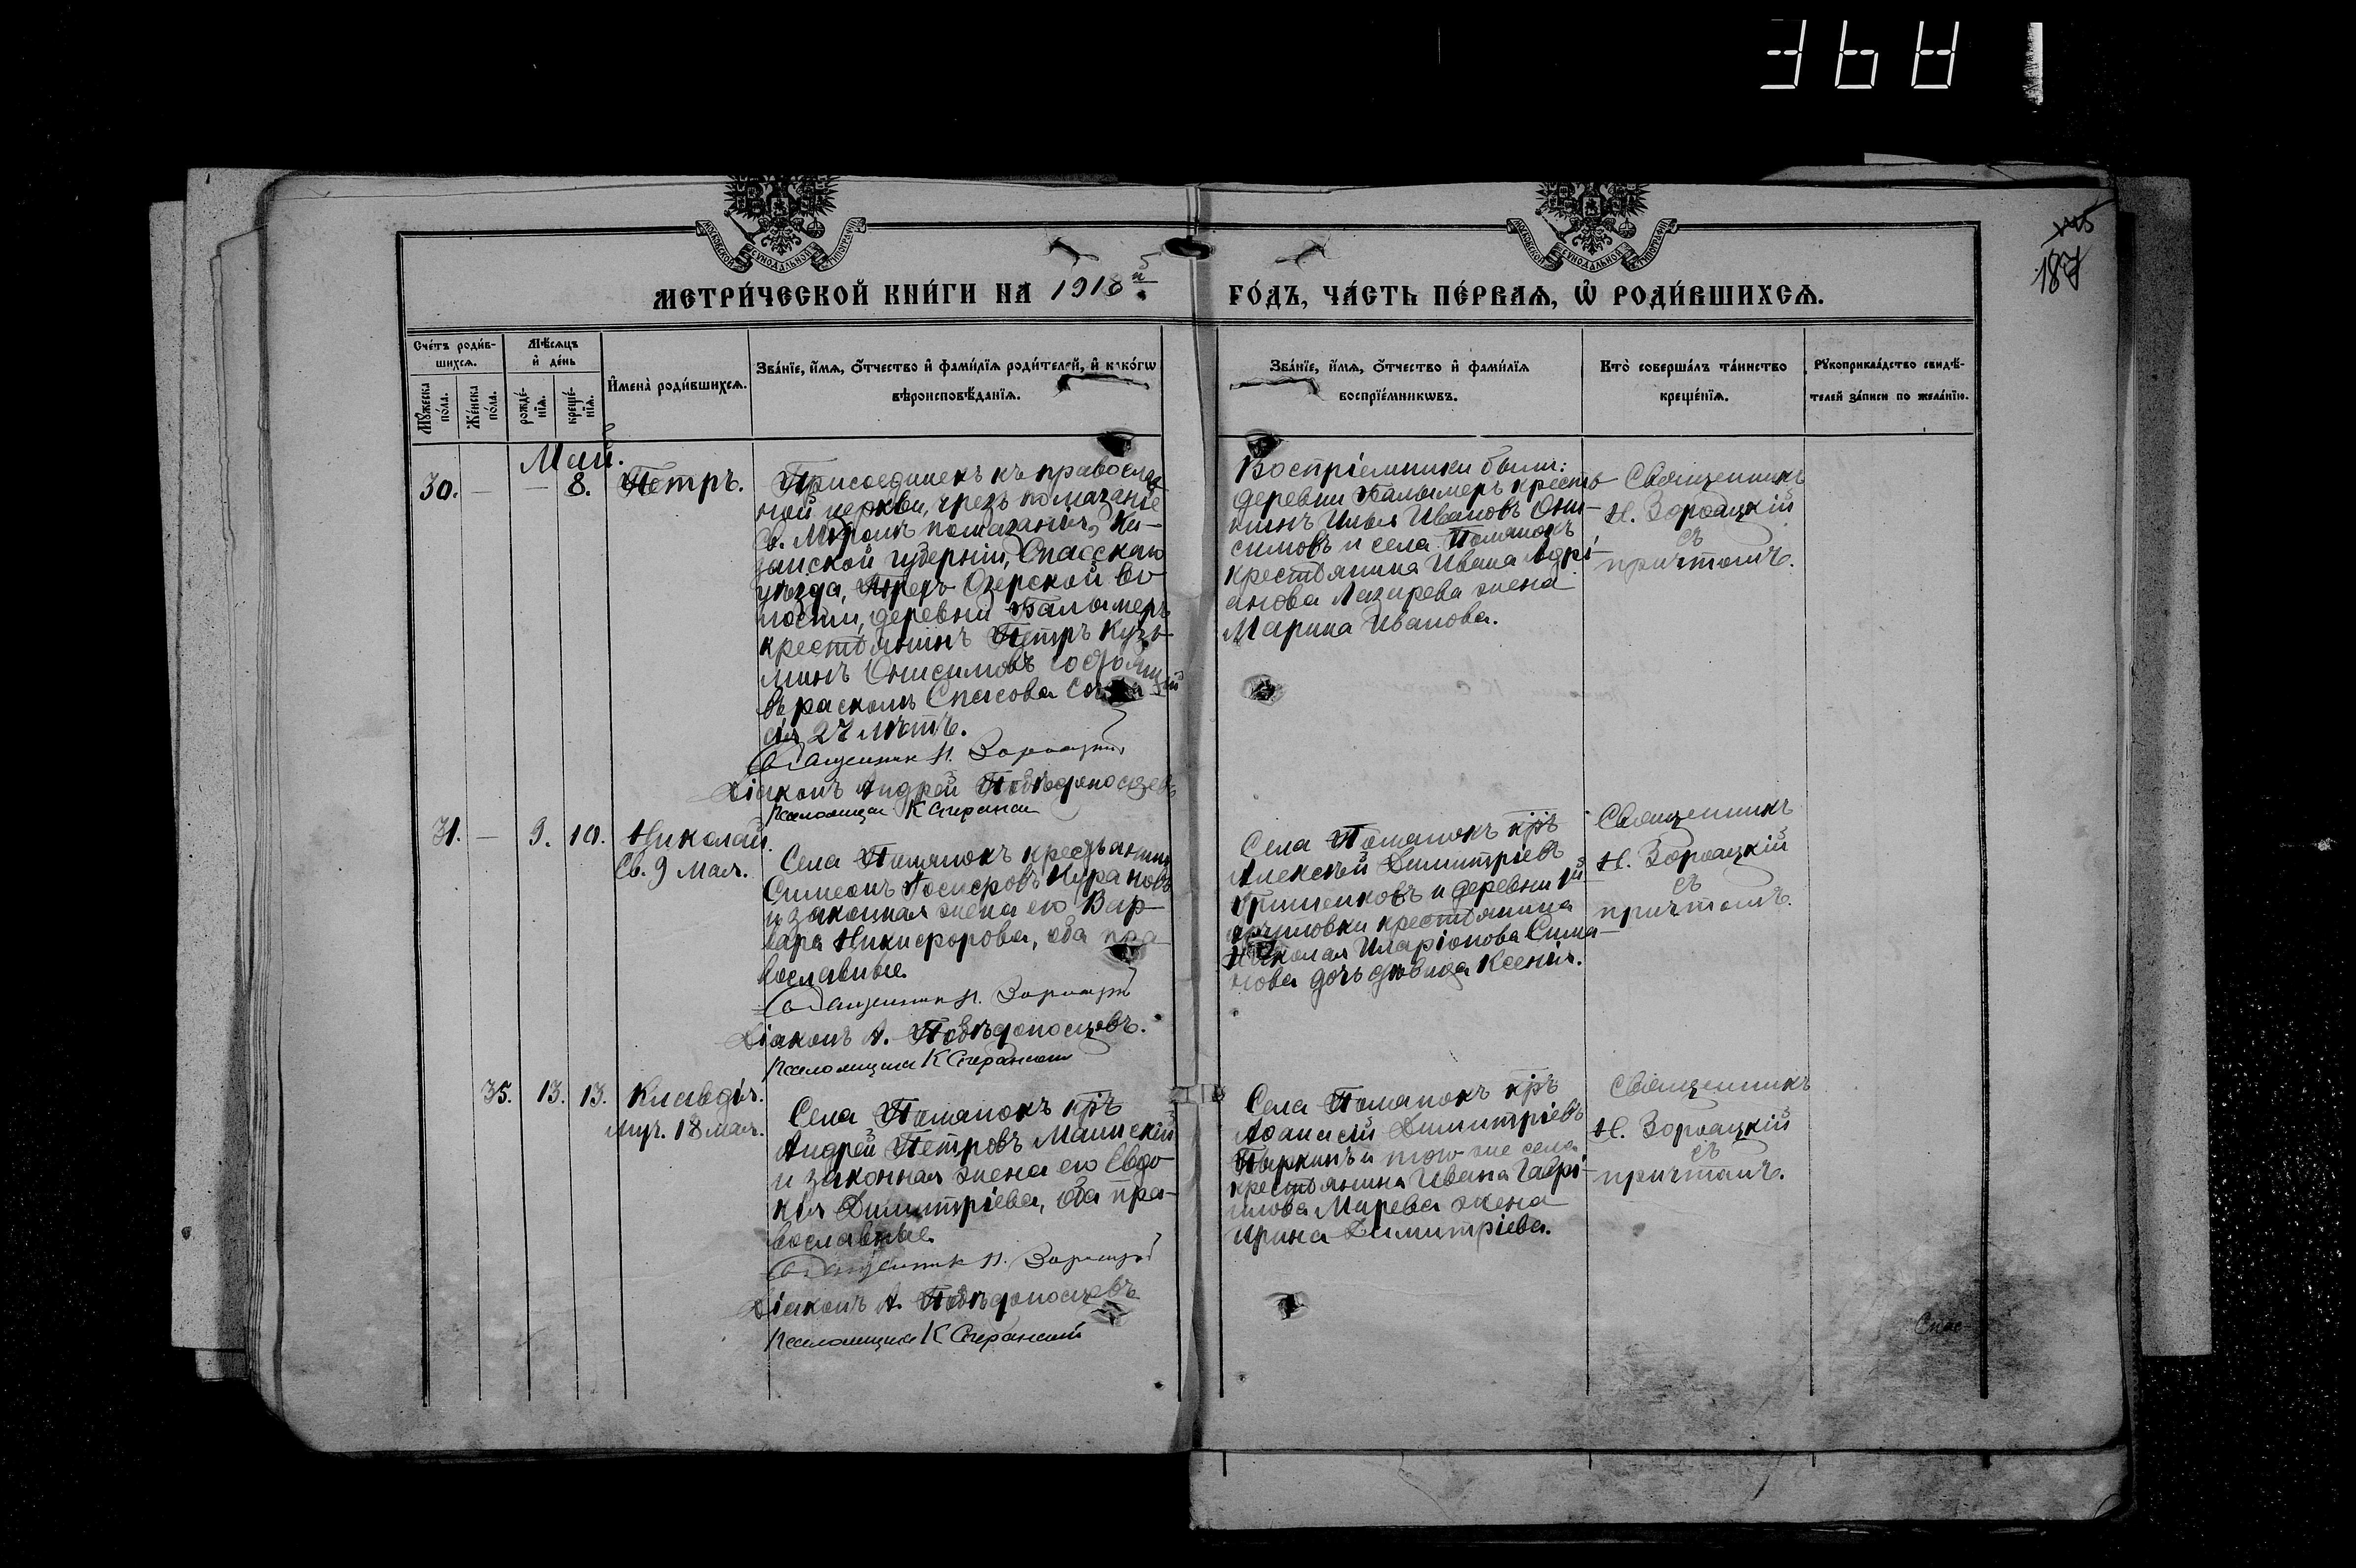 3681
145
187
МОСКОВСКОЙ СѴНОДАЛЬНОЙ ТИПОГРАФІИ
МОСКОВСКОЙ СѴНОДАЛЬНОЙ ТИПОГРАФІИ
МЕТРИ́ЧЕСКОЙ КНИ́ГИ НА 1918 й
ГО́ДЪ, ЧА́СТЬ ПЕ́РВАѦ, Ѡ҆ РОДИ́ВШИХСѦ.
Сче́тъ роди́в-
шихсѧ.
Мꙋ́жеска по́ла.
Же́нска по́ла.
Мѣ́сѧцъ
и҆ де́нь
рожде́-нїѧ.
креще́-нїѧ.
И҆мена̀ роди́вшихсѧ.
Зва́нїе, и҆́мѧ, ѻ҆́тчество и҆ фами́лїѧ роди́телей, и҆ како́гѡ
вѣроисповѣ́данїѧ.
Зва́нїе, и҆́мѧ, ѻ҆́тчество и҆ фами́лїѧ
воспрїе́мникѡвъ.
Кто̀ соверша́лъ та́инство
креще́нїѧ.
Рꙋкоприкла́дство свидѣ́-
телей за́писи по жела́нїю.
Май.
30. — — 8. Петръ.
Присоединенъ къ православ
ной церкви, чрезъ помазаніе
Св. Мѵромъ помазанія, Ка-
занской губерніи, Спасскаго
уѣзда, Трехъ Озерской во
лости, деревни Балымеръ
крестьянинъ Петръ Кузь-
минъ Онисимовъ состоящій
въ расколѣ Спасова согла-
сія 27 лѣтъ.
Священникъ Н. Зороацкій
Діаконъ Андрей Побѣдоносцевъ
Псаломщик К Сперанскій
Воспріемники были:
деревни Балымеръ кресть
нинъ Илья Ивановъ Они-
симовъ и села Полянокъ
крестьянина Ивана Адрі-
анова Лазарева жена
Марина Иванова.
Священникъ
Н. Зороацкій
съ
причтомъ.
31. — 9. 10. Николай.
Св. 9 Мая.
Села Полянокъ крестьянинъ
Симеонъ Іосифовъ Курановъ
и законная жена его Вар-
вара Никифорова, оба пра
вославные.
Священникъ Н. Зороацкій
Діаконъ А. Побѣдоносцевъ.
Псаломщик К Сперанскій
Села Полянокъ кр̃ъ
Алексѣй Димитріевъ
Гришенковъ и деревни 1й
крестьянина
Николая Иларіонова Сима-
нова дочь дѣвица Ксенія.
Священникъ
Н. Зороацкій
съ
причтомъ.
35. 13. 13. Клавдія.
муч. 18 мая.
Села Полянокъ кр̃ъ
Андрей Петровъ Маинскій
и законная жена его Евдо
кія Димитріева, оба пра-
вославные.
Священникъ Н. Зороацкій
Діаконъ А. Побѣдоносцевъ
Псаломщик К Сперанскій
Села Полянокъ кр̃ъ
Аѳанасій Димитріевъ
Пыркинъ и того же села
крестьянина Ивана Гаврі-
илова Марева жена
Ирина Димитріева.
Священникъ
Н. Зороацкій
съ
причтомъ.